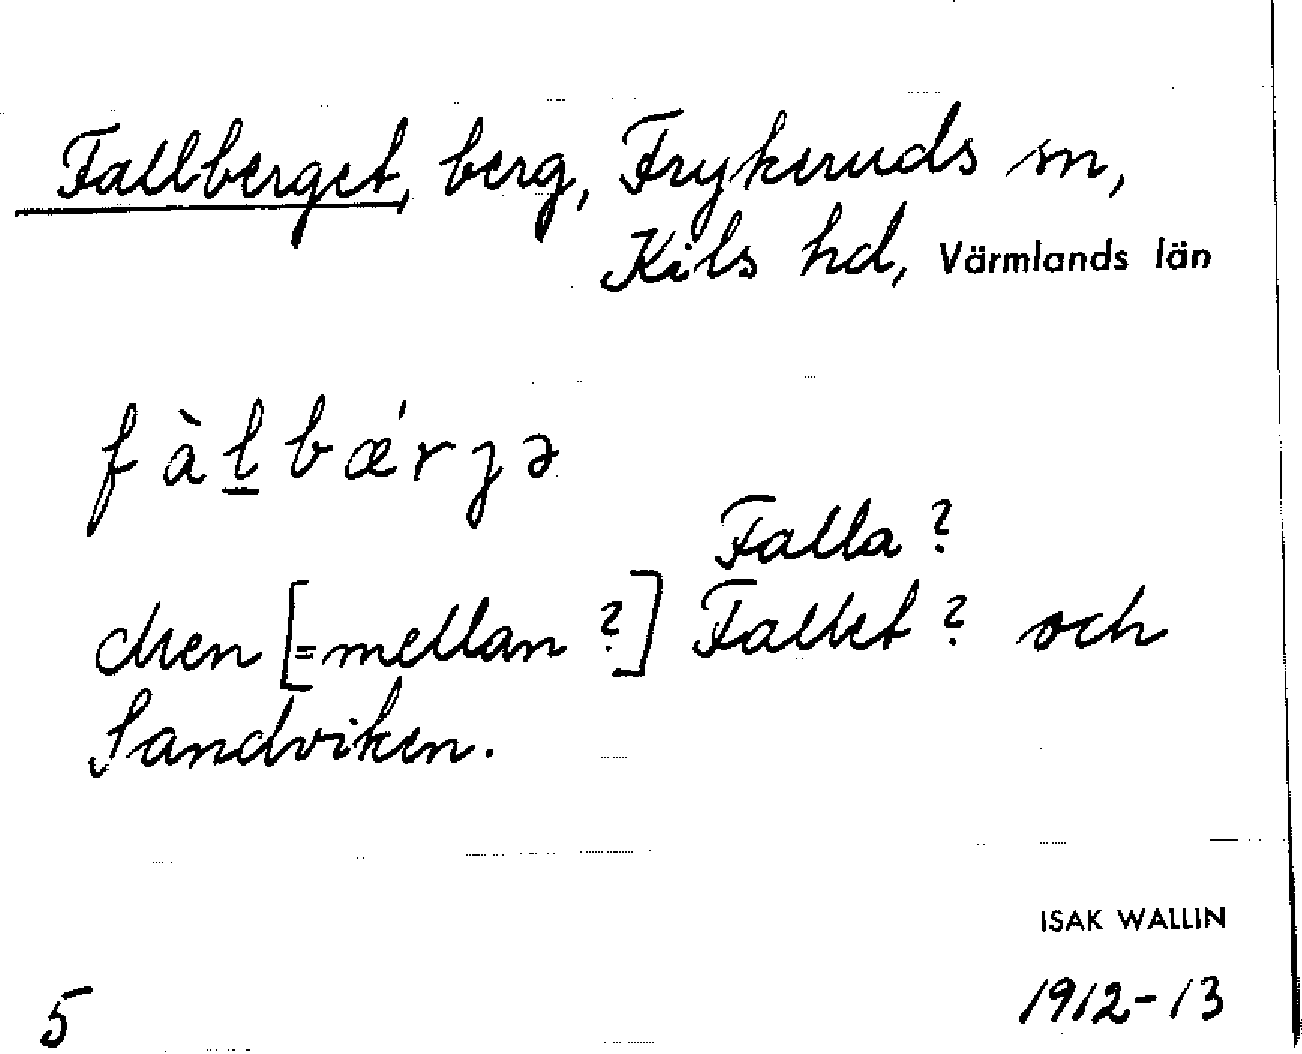 Fallberget, berg, Frykeruds sn,
Kils hd, Värmlands län
fàl̲bǽrjə
Falla?
dren [=mellan?] Fallet? och
Sandviken.
ISAK WALLIN
5 1912-13